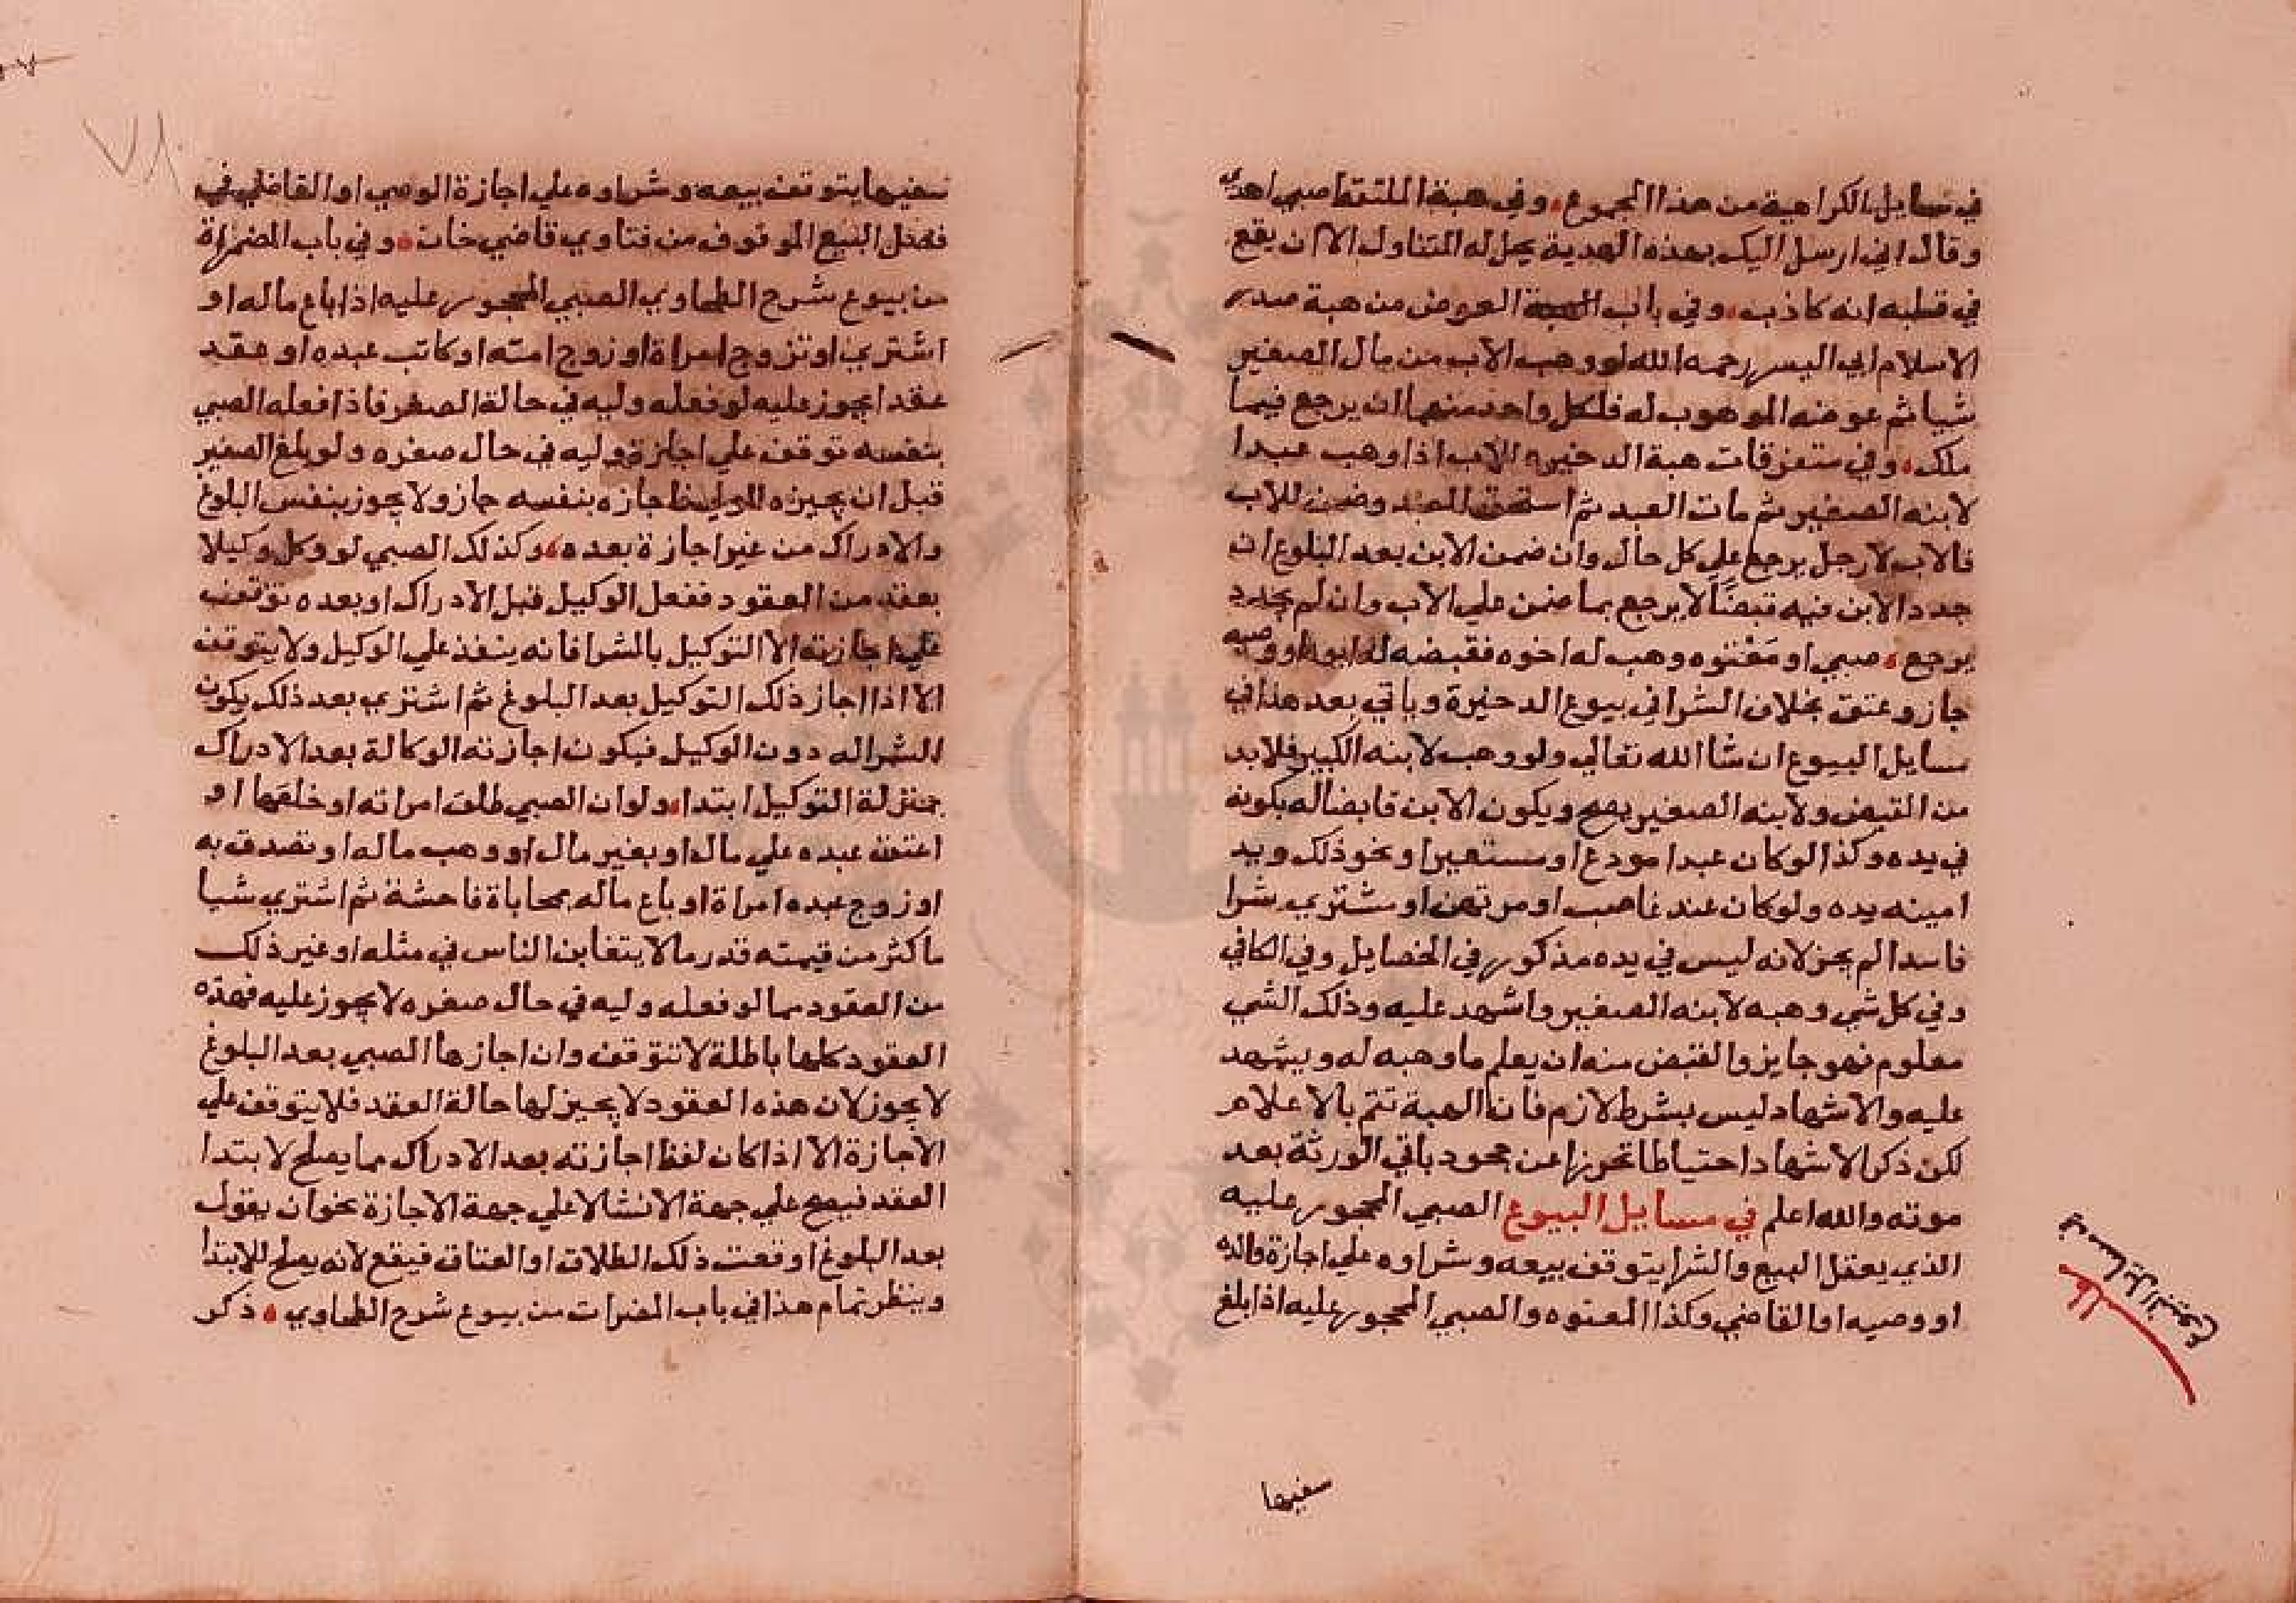 في مسايل الكراهية من هذا المجموع، وفي هبة الملتقط صبي اهدي
وقال ابي ارسل اليك بهذه الهدية يحل له التناول الا ان يقع
في قلبه انه كاذب، وفي باب العوض من هبة صدر
الاسلام ابي اليسر رحمه الله لو وهب الاب من مال الصغير
شيا ثم عوضه الموهوب له فلكل واحد منهما ان يرجع فيما
ملك، وفي متفرقات هبة الدخيره الاب اذا وهب عبدا
لابنه الصغير ثم مات العبد ثم استحق العبد وضمن للاب
فالاب لا رجل يرجع علي كل حال وان ضمن الابن بعد البلوغ ان
جدد الابن فيه قبضًا لا يرجع بما ضمن علي الاب وان لم يجدد
يرجع، صبي او معتوه وهب له اخوه فقبضه له ابوه او وصيه
جاز وعتق بخلاف الشرا في بيوع الدخيرة وياتي بعد هذا في
مسايل البيوع ان شا الله تعالي ولو وهب لابنه الكبير فلا بد
من القبض ولابنه الصغير يصح ويكون الابن قابضا له بكونه
في يده وكذا لو كان عبدا مودعا او مستعيرا ونحو ذلك ويد
امينه يده ولو كان عند غاصب او مرتهن او مشتري شرا
فاسدا لم يجز لانه ليس في يده مذكور في الخصايل وفي الكافي
وفي كل شي وهبه لابنه الصغير واشهد عليه وذلك الشي
معلوم فهو جايز والقبض منه ان يعلم ما وهبه له ويشهد
عليه والاشهاد ليس بشرط لازم فان الهبة تتم بالاعلام
لكن ذكر الاشهاد احتياطا تحرزا عن جحود باقي الورثة بعد
موته والله اعلم في مسايل البيوع الصبي المحجور عليه
الذي يعقل البيع والشرا يتوقف بيعه وشراوه علي اجازة والده
او وصيه او القاضي وكذا المعتوه والصبي المحجور عليه اذا بلغ
سفيها
في مسايل البيوع
٧٨
سفيها يتوقف بيعه وشراوه علي اجازة الوصي او القاضي في
فصل البيع الموقوف من فتاوي قاضي خان، وفي باب المضراة
من بيوع شرح الطحاوي الصبي المحجور عليه اذا باع ماله او
اشتري او تزوج امراة او زوج امته او كاتب عبده او عقد
عقدا يجوز عليه لو فعله وليه في حالة الصغر فاذا فعله الصبي
بنفسه توقف علي اجازة وليه في حال صغره ولو بلغ الصغير
قبل ان يجيزه الولي فاجازه بنفسه جاز ولا يجوز بنفس البلوغ
والادراك من غير اجازة بعده، وكذلك الصبي لو وكل وكيلا
بعقد من العقود ففعل الوكيل قبل الادراك او بعده توقف
علي اجازته الا التوكيل بالشرا فانه ينفذ علي الوكيل ولا يتوقف
الا اذا اجاز ذلك التوكيل بعد البلوغ ثم اشتري بعد ذلك يكون
الشرا له دون الوكيل فيكون اجازته الوكالة بعد الادراك
بمنزلة التوكيل ابتدا، ولو ان الصبي طلق امراته او خلعها او
اعتق عبده علي مال او بغير مال او وهب ماله او تصدق به
او زوج عبده امراة او باع ماله بمحاباة فاحشة ثم اشتري شيا
ماكثر من قيمته قدر ما لا يتغابن الناس في مثله او غير ذلك
من العقود مما لو فعله وليه في حال صغره لا يجوز عليه فهذه
العقود كلها باطلة لا تتوقف وان اجازها الصبي بعد البلوغ
لا يجوز لان هذه العقود لا يجيز لها حالة العقد فلا يتوقف علي
الاجازة الا اذا كان لفظ اجازته بعد الادراك مما يصلح لابتدا
العقد فيصح علي جهة الانشا لا علي جهة الاجازة نحو ان يقول
بعد البلوغ اوقعت ذلك الطلاق او العتاق فيقع لانه يصلح للابتدا
وينظر تمام هذا في باب المضرات من بيوع شرح الطحاوي، ذكر